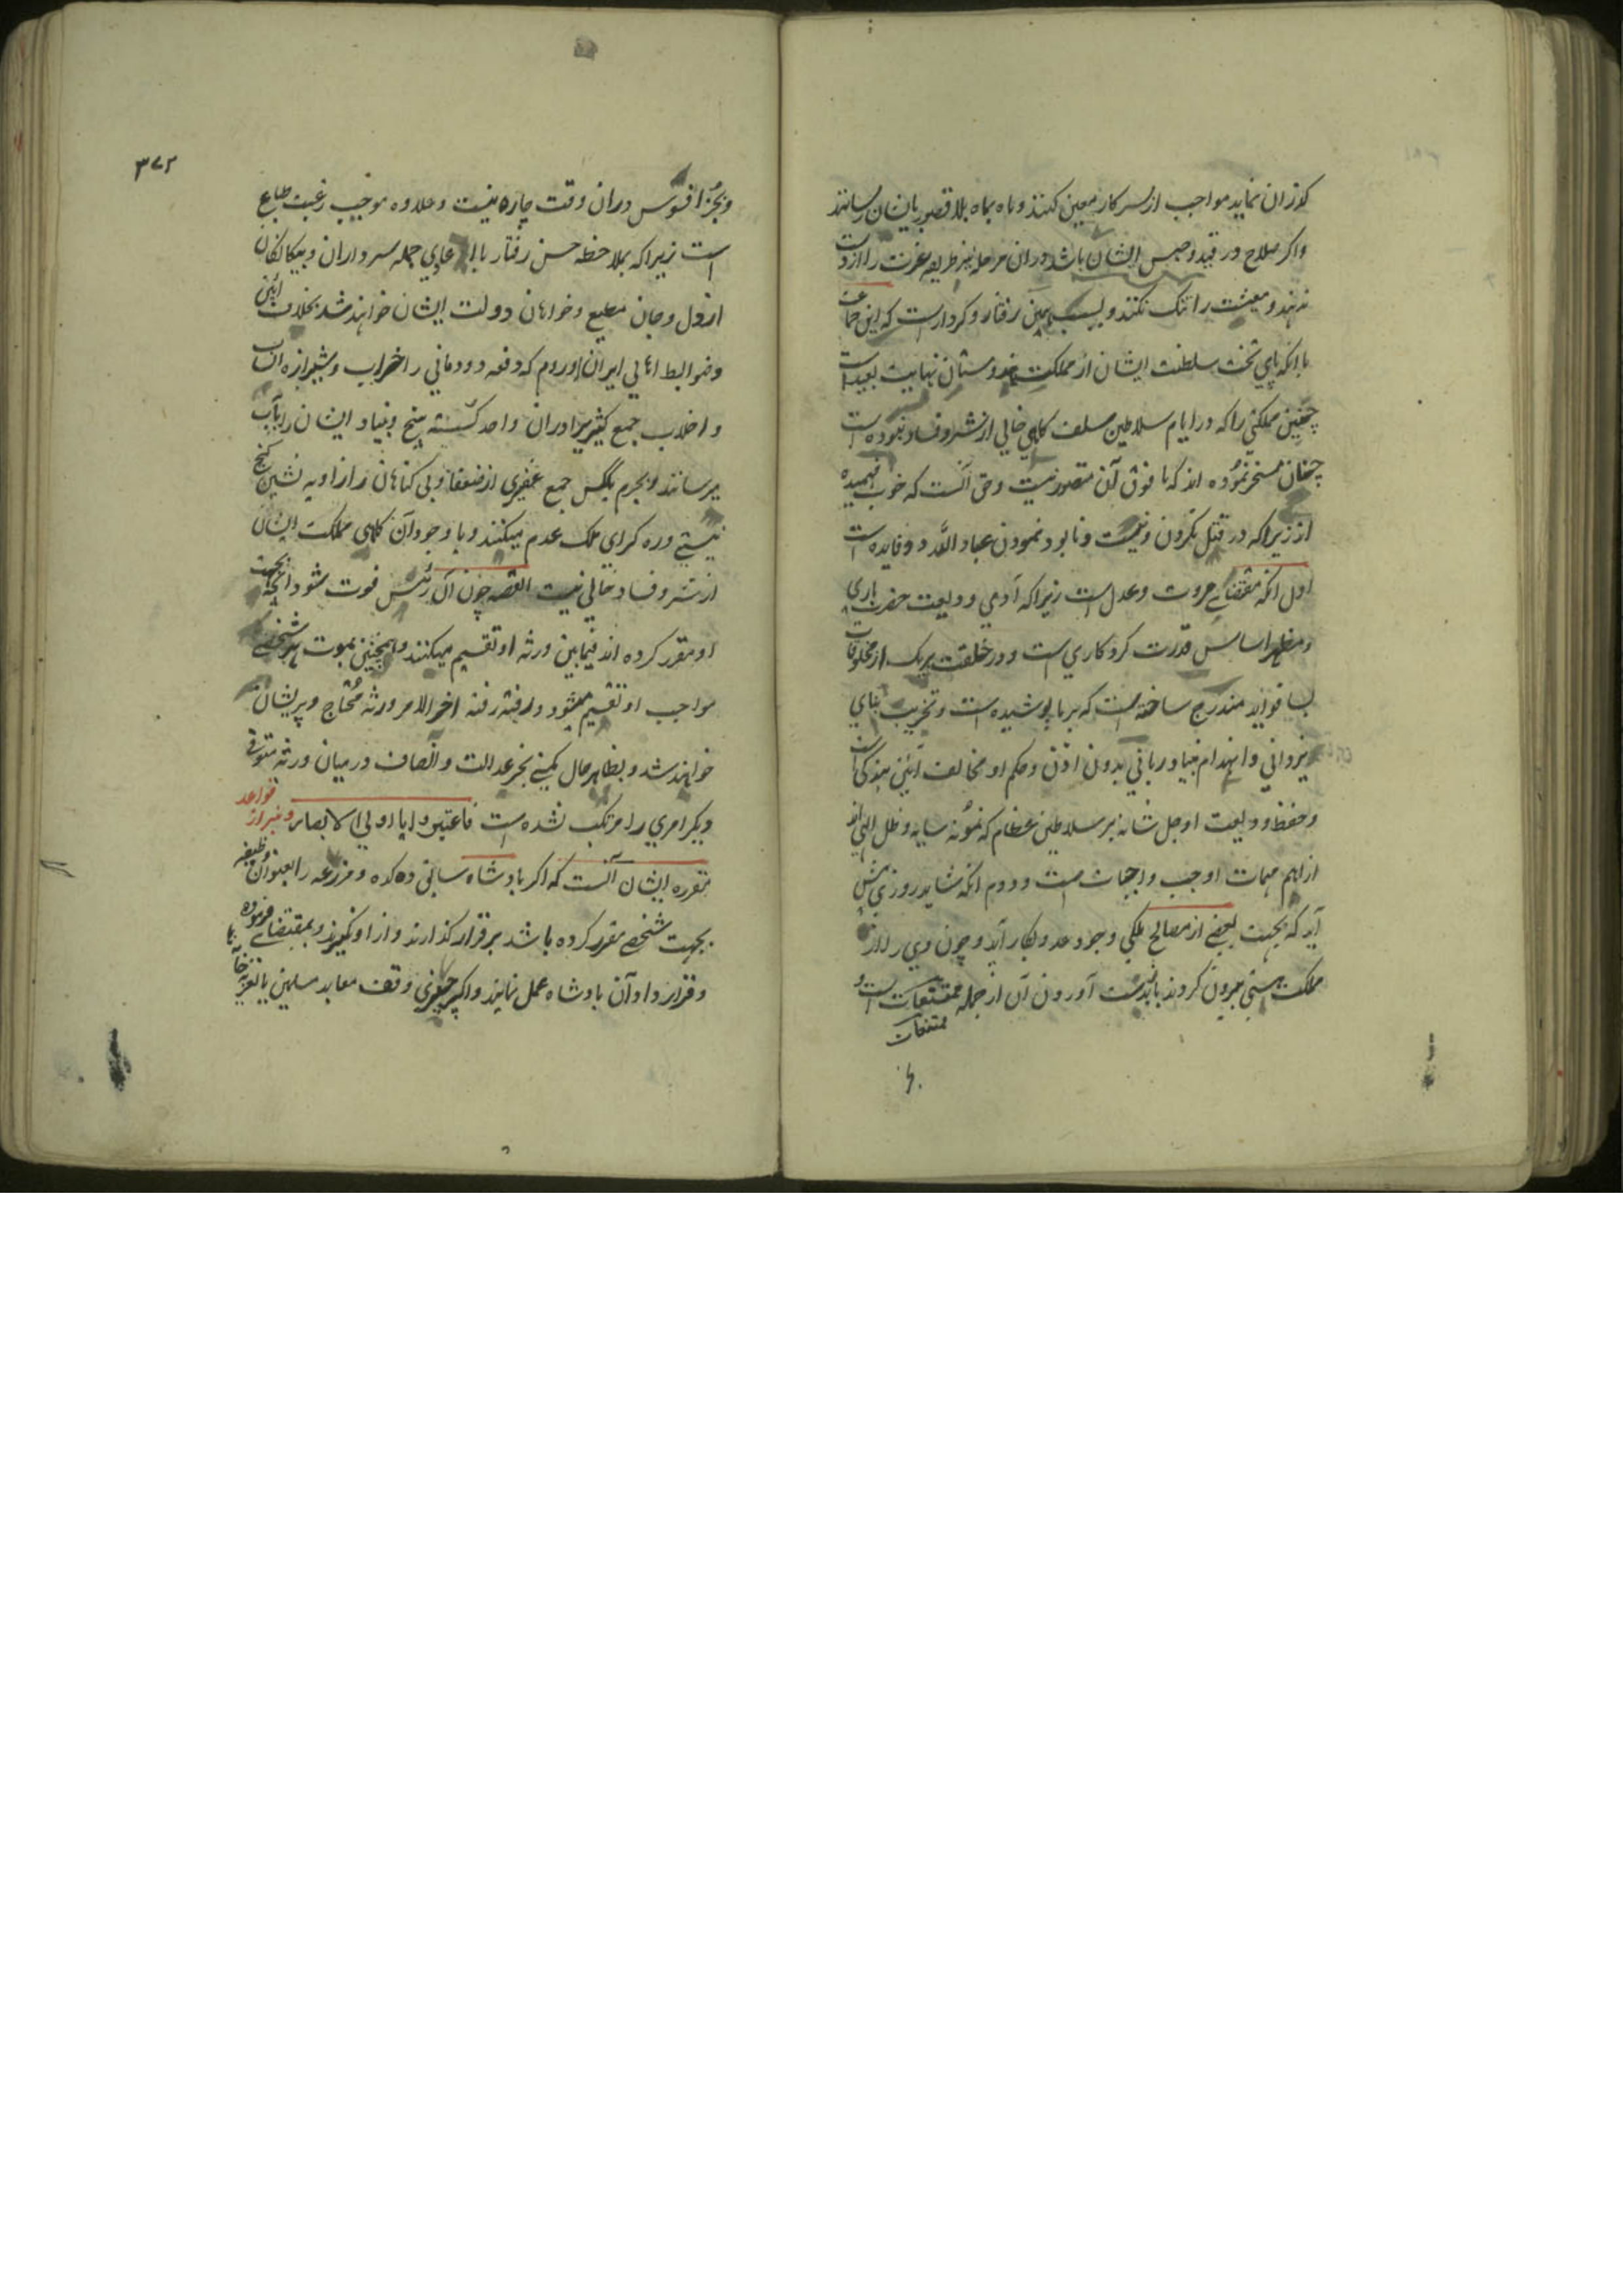 گذران نماید مواجب از سرکار معین کنند و ماه بماه بلا قصور بایشان رسانند
و اگر صلاح در قید و حبس ایشان باشد در ان مرحله نیز طریقه عزت را از دست
ندهند و معیشت را تنک نکنند و بسبب همین رفتار و کردار است که این جماعت
با انکه پای تخت سلطنت ایشان از مملکت هندوستان نهایت بعید است
چنین مملکتی را که در ایام سلاطین سلف کاهی خالی از شر و فساد نبوده است
چنان مسخر نموده اند که ما فوق آن متصور نیست و حق آنست که خوب فهمیده
اند زیرا که در قتل نکردن و نیست و نابود ننمودن عباد الله دو فایده است
اول انکه مقتضای مروت و عدل است زیرا که آدمی ودیعت حضرت باری
و مظهر اساس قدرت کردکاری است و در خلقت هریک از مخلوقات
بسا فواید مندرج ساخته است که بر ما پوشیده است و تخریب بنای
یزدانی و انهدام بنیاد ربانی بدون اذن و حکم او مخالف آئین بندگی است
و حفظ ودیعت او جل شانه بر سلاطین عظام که نمونه سایه و ظل الهی اند
از اهم مهمات اوجب واجبات است و دوم انکه شاید روزی پیش
آید که بجهت بعضی از مصالح ملکی وجود عدو بکار آید و چون وی را از
مملکت هستی بیرون کردند باز بدست آوردن آن از جمله ممتنعات است و
ممتنعات
۳۷۲
و بجز افسوس در ان وقت چاره نیست و علاوه موجب رغبت طباع
است زیرا که بملاحظه حسن رفتار با اعادی جمله سرداران و بیکانکان
از دل و جان مطیع و خواهان دولت ایشان خواهند شد بخلاف آئین
و ضوابط اهالی ایران و روم که دفعه دودمانی را خراب و شیرازه انساب
و احلاب جمع کثیر را در ان واحد کسسته بیخ و بنیاد ایشان را بآب
میرسانند و بجرم یککس جمع غفیری از ضعفا و بی کناهان را زاویه نشین کنج
نیستی و ره کرای ملک عدم میکنند و با وجود آن کاهی مملکت ایشان
از شر و فساد خالی نیست القصه چون آن رئیس فوت شود انچه بجهت
او مقرر کرده اند فیمابین ورثه او تقسیم میکنند و همچنین بموت هر شخصی
مواجب او تقسیم میشود و رفته رفته اخر الامر ورثه محتاج و پریشان
خواهند شد و بظاهر حال کمپنی بجز عدالت و انصاف در میان ورثه متوفی
دیکر امری را مرتکب نشده است فاعتبروا یا اولی الابصار و نیز از قواعد
مقرره ایشان آنست که اکر پادشاه سابق دهکده و مزرعه را بعنوان وظیفه
بجهت شخصی مقرر کرده باشد برقرار گذارند و از او نکیرند و بمقتضای فرموده
و قرارداد آن پادشاه عمل نمایند و اکر چیزی وقف معابد مسلمین یا تعزیه خانه